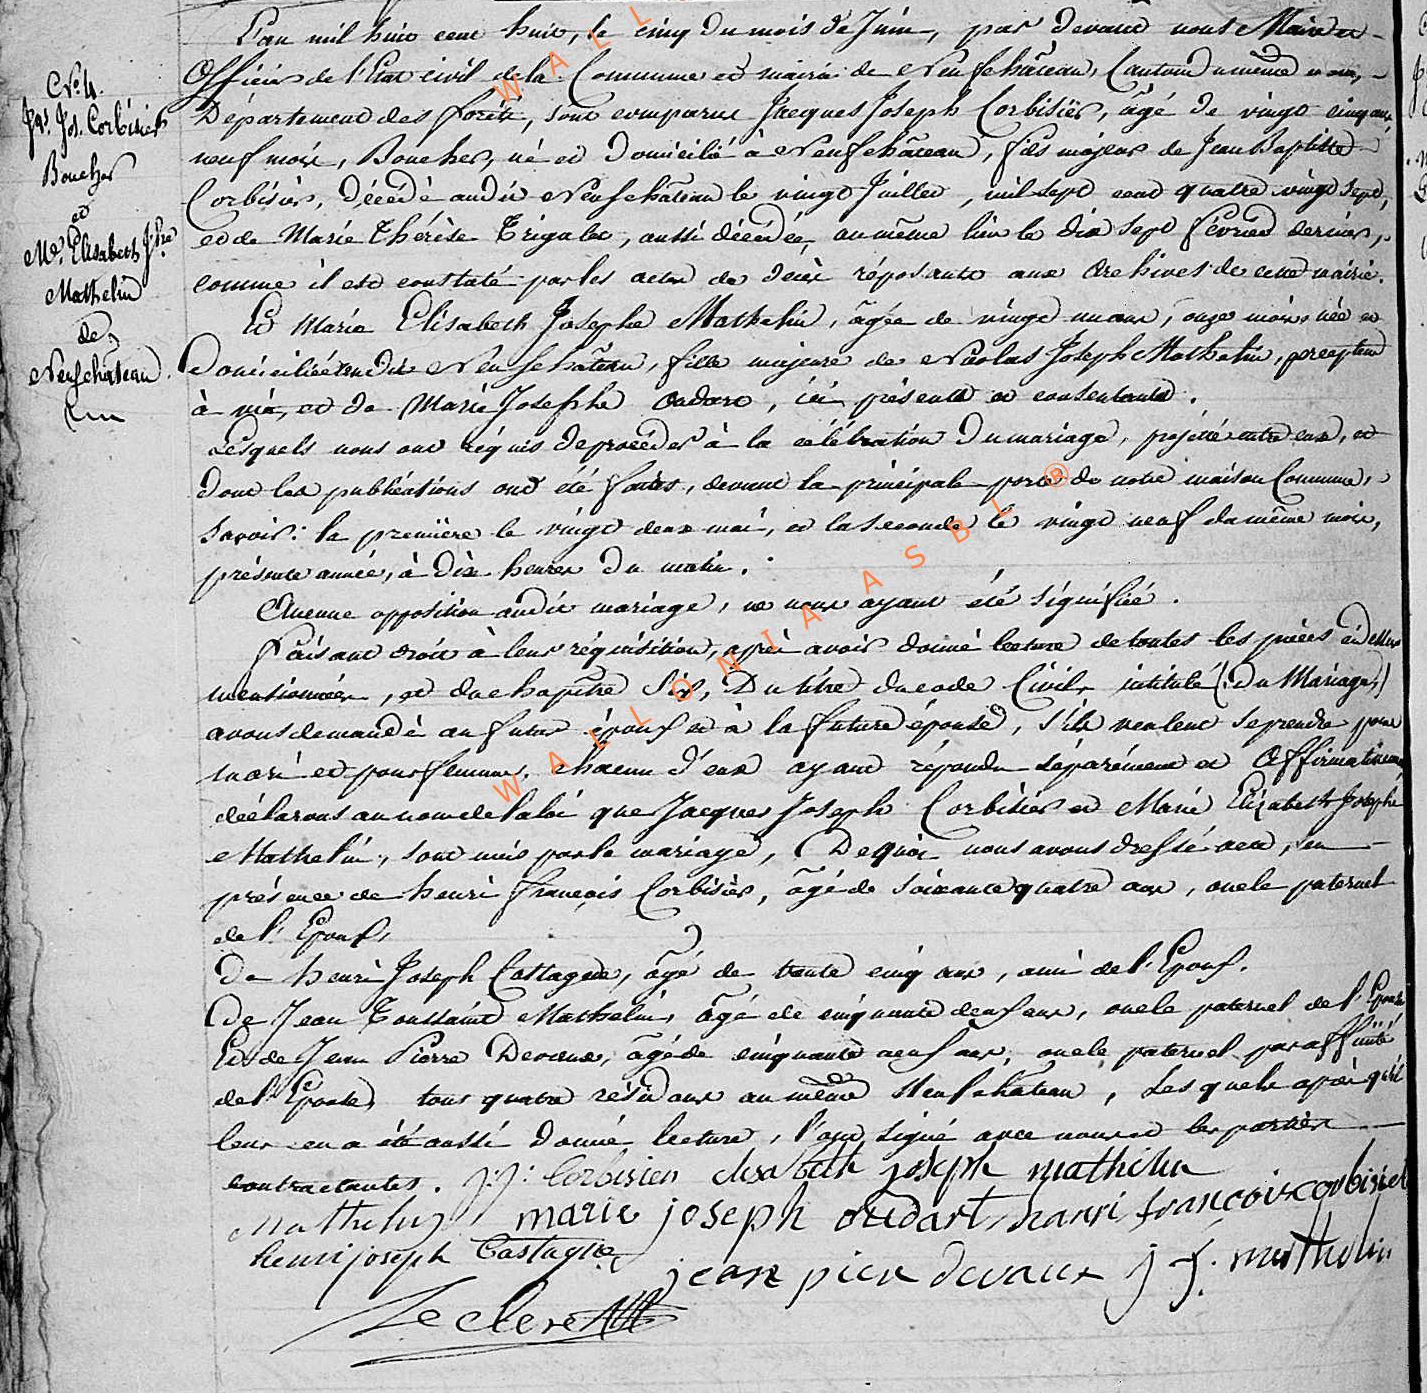 N.º 4.
Jqs. Jos. Corbisier
Boucher
et
Me. Elisabeth Jphe
Mathelin
de
Neufchateau
L'an mil huit cent huit, le cinq du mois de Juin, par devant nous Maire et
Officier de l'Etat civil de la Commune et mairie de Neufchâteau, Canton du même nom,
Département des forêts, sont comparus Jacques Joseph Corbisier, âgé de vingt cinq ans,
neuf mois, Boucher, né et domicilié à Neufchâteau, fils majeur de Jean Baptiste
Corbisier, décédé audit Neufchâteau le vingt Juillet, mil sept cent quatre vingt sept,
et de Marie Thérèse Trigalet, aussi décédée, au même lieu le dix sept février dernier,
comme il est constaté par les actes de décès réposants aux archives de cette mairie.
Et Marie Elisabeth Josephe Mathelin, âgée de vingt un ans, onze mois, née et
Domiciliée audit Neufchâteau, fille majeure de Nicolas Joseph Mathelin, percepteur
à vie, et de Marie Josephe Oudart, ici présents et consentants.
Lesquels nous ont réquis de procéder à la célébration du mariage, projetté entre eux, et
dont les publications ont été faites, devant la principale porte de notre maison Commune,
savoir: la première le vingt deux mai, et la seconde le vingt neuf du même mois,
présente année, à dix heures du matin.
Aucune opposition audit mariage, ne nous ayant été signifiée.
Faisant droit à leur réquisition, après avoir donné lecture de toutes les pièces ci dessus
mentionnées, et du chapitre Six, Du titre du code Civil, intitulé (: du Mariage,)
avons demandé au futur époux et à la future épouse, s'ils veulent se prendre pour
mari et pour femme, chacun d'eux ayant répondu séparément et affirmativement,
déclarons au nom de la loi que Jacques Joseph Corbisier et Marie Elizabeth Josephe
Mathelin, sont unis par le mariage, De quoi nous avons dressé acte, en
présence de henri françois Corbisier, âgé de soixante quatre ans, oncle paternel
de l'Epoux,
De henri Joseph Castagne, âgé de trente cinq ans, ami de l'Epoux.
De Jean Toussaint Mathelin, âgé de cinquante deux ans, oncle paternel de l'Epouse
Et de Jean Pierre Devaux, âgé de cinquante neuf ans, oncle paternel par affinité
de l'Epouse, tous quatre résidans au même Neufchâteau, Lesquels après qu'il
leur en a été aussi donné lecture, l'ont signé avec nous et les parties
contractantes. J.J. Corbisier elisabeth joseph mathelin
Mathelin marie joseph oudart, hanri françois corbisier
henri joseph Castagne jean pier devaux j t. mathelin
Leclere
WALLONIA ASBL ®
WALL